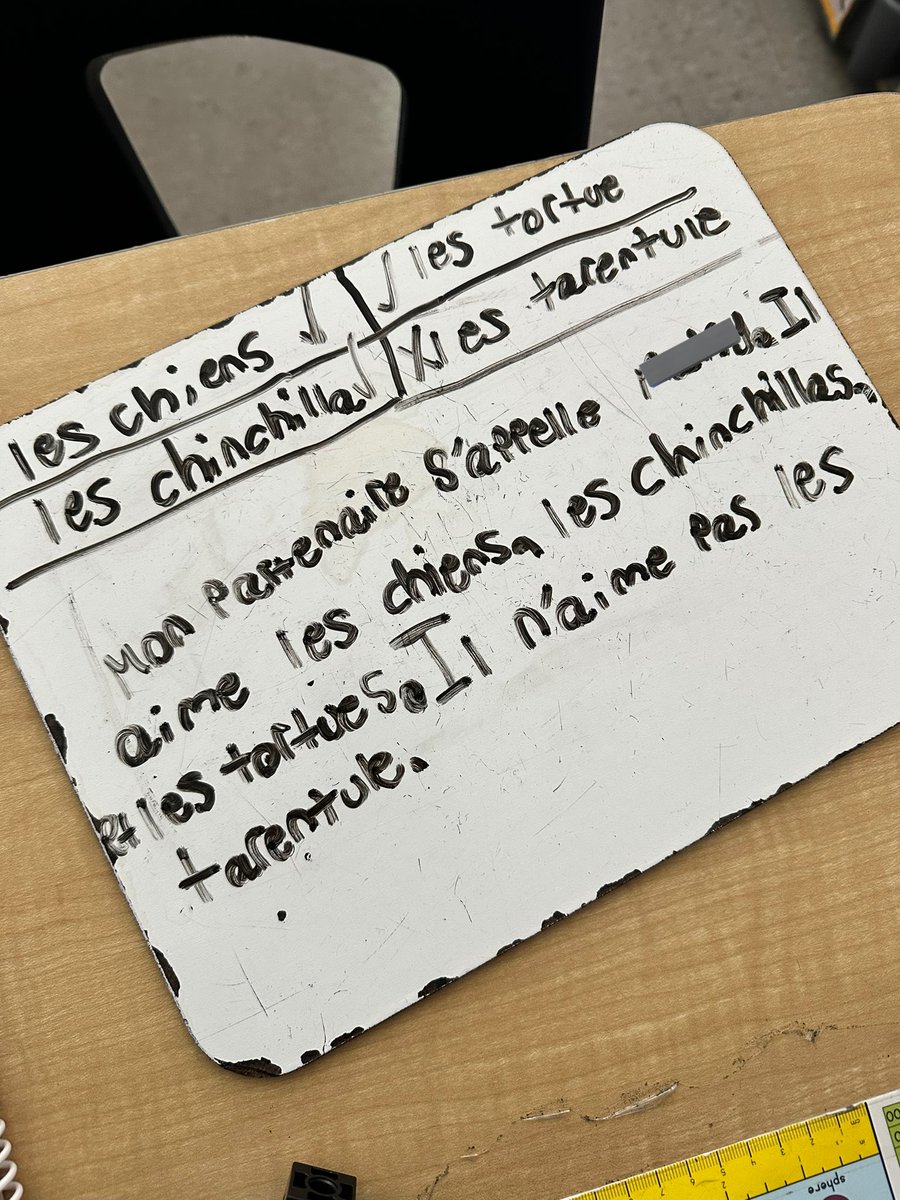 les chiens ✓ ✓ les tortue
les chinchilla ✓ X les tarentule
Mon partenaire s'appelle . Il
aime les chiens, les chinchillas,
et les tortues. Il n'aime pas les
tarentule.
cm
sphere